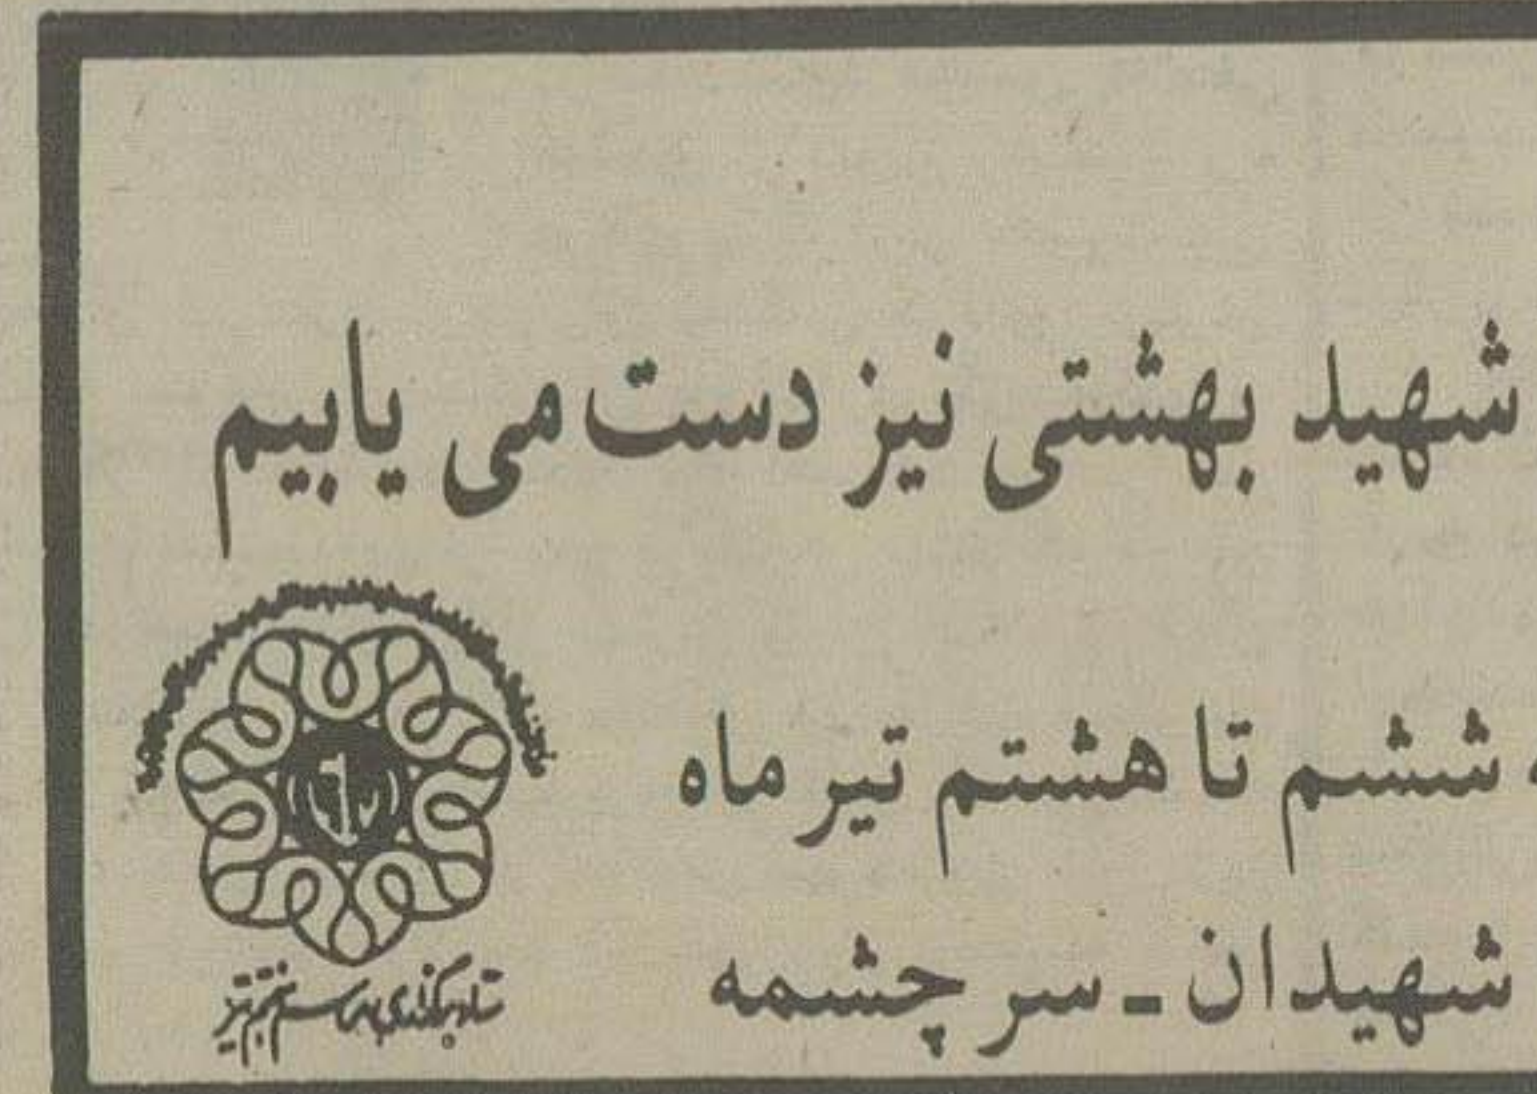 شهید بهشتی نیز دست می یابیم
ششم تا هشتم تیر ماه
شهیدان - سر چشمه
ستاد برگذاری مراسم هفتم تیر